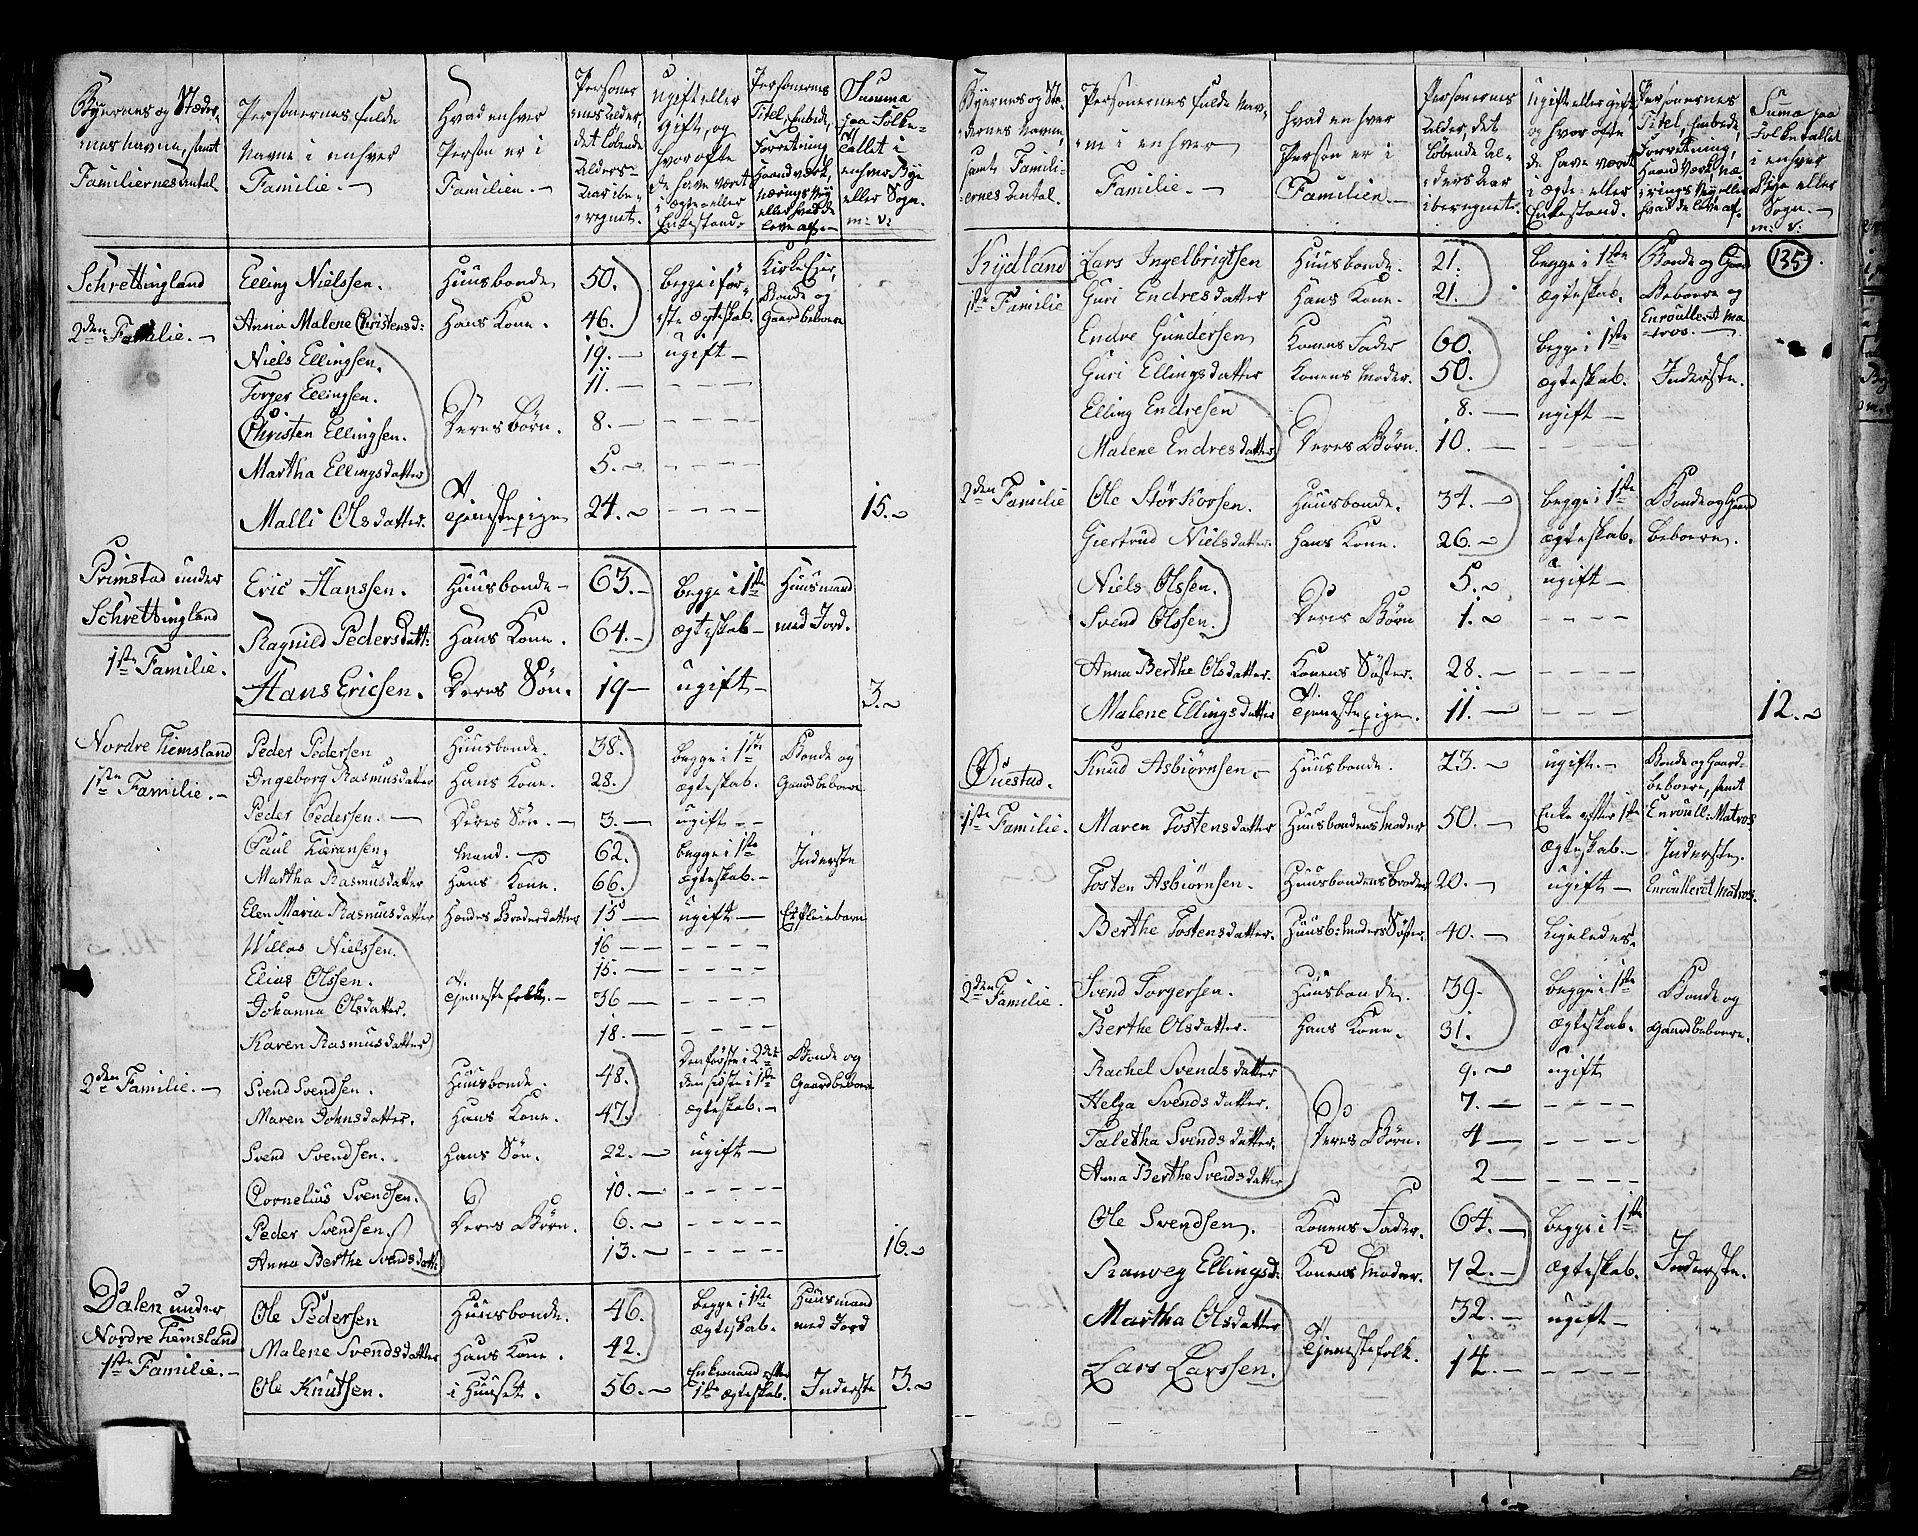 Byernes og Stæder-
nes Navne, samt
Familiernes Antal.
Personernes fulde
Navne i enhver
Familie.
Hvad enhver
Person er i
Familien.
Personer-
nes Alder,
det løbende
Alders-
Aar ibe-
regnet.
Ugift eller
gift, og
hvor ofte
de have været
i Ægte- eller
Enkestand.
Personernes
Titel, Embede,
Forretning
Haandværk,
Nærings Vej
eller hvad de
leve af.
Summa
paa Folke-
tallet i
enhver Bye
eller Sogn.
m: v:
Schrettingland
2den Familie.
Elling Nielssen. Huusbonde 50. begge i før- Kirke Eier,
Anna Malene Christensd: Hans Kone. 46. ste Ægteskab. Bonde og Gaardbeboere
Niels Ellingsen. 19. ugift
Torger Ellingsen. 11. - - - -
Christen Ellingsen. Deres Børn. 8. - - - -
Martha Ellingsdatter 5. - - - -
Malli Olsdatter. Tjenestepige 24. - - - - 15.
Primstad under
Schrettingland
1ste Familie.
Eric Hanssen. Huusbonde 63. begge i 1ste Huusmand
Ragnild Pedersdatt: Hans Kone. 64. Ægteskab med Jord.
Hans Ericsen. Deres Søn. 19 ugift 3.
Nordre Tiemsland
1ste Familie.
Peder Pedersen Huusbonde. 38. begge i 1ste Bonde og
Ingeborg Rasmusdatter Hans Kone. 28. Ægteskab. Gaardbeboere
Peder Pedersen. Deres Søn. 3. ugift
Paul Tøransen. Mand. 62. begge i 1ste Inderste
Martha Rasmusdatter Hans Kone. 66. Ægteskab.
Elen Maria Rasmusdatter Hendes Broderdatter 15 ugift Et Pleiebarn
Willas Nielssen. 16 - - - -
Elias Olssen. 15. - - - -
Johanna Olsdatter. Tjenestefolk. 36 - - - -
Karen Rasmusdatter 18. - - - -
2den Familie.
Svend Svendsen. Huusbonde. 48. Den første i 2det Bonde og
Maren Johnsdatter. Hans Kone. 47. den sidste i 1ste Ægteskab. Gaardbeboere
Svend Svendsen. Hans Søn. 22. ugift
Cornelius Svendsen. 10. - - - -
Peder Svendsen. Deres Børn. 6. - - - -
Anna Berthe Svendsdatt: 13. - - - - 16.
Dalen under
Nordre Tiemsland
1ste Familie.
Ole Pedersen Huusbonde. 46. begge i 1ste Huusmand
Malene Svendsdatter Hans Kone. 42. Ægteskab. med Jord
Ole Knutsen. i Huuset. 56. Enkemand efter 1ste Ægteskab. Inderste 3.
Byernes og Stæ-
dernes Navne,
samt Famili-
ernes Antal.
Personernes fulde Nav-
ne i enhver
Familie.
Hvad enhver
Person er i
Familien.
Personernes
Alder, det
løbende Al-
ders Aar
iberegnet.
Ugift eller gift,
og hvor ofte
de have været
i Ægte- eller
Enkestand.
Personernes
Titel, Embede,
Forretning,
Haand Værk, Næ-
rings Vej eller
hvad de leve af.
Suma paa
Folketallet
i enhver
Bye eller
Sogn.
m: v:
135.
Kydland
1ste Familie
Lars Ingelbrigtsen Huusbonde. 21. begge i 1ste Bonde og Gaard
Guri Endresdatter Hans Kone. 21. Ægteskab. Beboere og Enroulleret Matros.
Endre Gundersen Konens Fader 60. begge i 1ste
Guri Ellingsdatter Konens Moder. 50. Ægteskab. Inderste.
Elling Endresen 8. ugift
Malene Endresdatter Deres Børn. 10. - - - -
2den Familie
Ole Størkorsen. Huusbonde. 34. begge i 1ste Bonde og Gaard
Giertrud Nielsdatter. Hans Kone. 26. Ægteskab. beboere.
Niels Olssen. 5. ugift
Svend Olssen. Deres Børn 1. - - - -
Anna Berthe Olsdatter. Konens Søster. 28. - - - -
Malene Ellingsdatter Tjenestepige. 11. - - - - 12.
Øuestad.
1ste Familie.
Knud Asbiørnsen. Huusbonde. 23. ugift. Bonde og Gaard-beboere, samt Enroull: Matros
Maren Tostensdatter Huusbondens Moder 50. Enke efter 1ste Ægteskab. Inderste.
Tosten Asbiørnsen. Huusbondens Broder 20. ugift Enroulleret Matros.
Berthe Tostensdatter. Huusb: Moders Søster. 40. ligeledes.
2den Familie.
Svend Torgersen. Huusbonde. 39. begge i 1ste Bonde og
Berthe Olsdatter. Hans Kone. 31. Ægteskab. Gaardbeboere.
Rachel Svendsdatter 9. ugift
Helga Svendsdatter. 7. - - - -
Taletha Svendsdatter. Deres Børn. 4 - - - -
Anna Berthe Svendsdatter 2 - - - -
Ole Svendsen. Konens Fader. 64. begge i 1ste
Ranveg Ellingsd: Konens Moder. 72. Ægteskab. Inderste.
Martha Olsdatter 32. ugift
Lars Larssen. Tjenestefolk. 14. - - - -